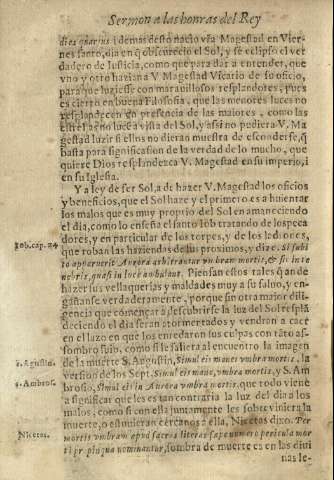 Sermon a las honras del Rey
dies quartus i demas desto nacio vra Magestad en Vier-
nes santo, dia en q̃ obscurecio el Sol, y se eclipso el ver
dadero de Iusticia, como que para dar a entender, que
vno y otro hazian a V Magestad Vicario de su oficio,
para que luziesse con marauillosos resplandores, pues
es cierto en buena Filosofia, que las menores luces no
resplandecen en presencia de las maiores, como las
estrel as no luce a vista del Sol, y assi no pudiera V. Ma
gestad luzir si ellos no dieran muestra de esconderse, q̃
basta para significacion de la verdad de lo mucho, que
quiere Dios resplandezca V. Magestad en su imperio, i
en su Iglesia.
Y a ley de ser Sol, a de hazer V. Magestad los oficios
y beneficios, que el Sol haze y el primero es a huientar
los malos que es muy proprio del Sol en amaneciendo
el dia, como lo enseña el santo Iob tratando de los peca
dores, y en particular de los torpes, y de los ladrones,
Iob. cap. 24
que roban las haziendas de sus proximos, y dize. Si subi
to apparuerit Aurora arbitrantur vmbram mortis, & sic in te
nebris, quasi in luce ambulant. Piensan estos tales q̃ an de
hazer sus vellaquerias y maldades muy a su saluo, y en-
gañanse verdaderamente, porque sin otra maior dili-
gencia que començar a descubrirse la luz del Sol respla
deciendo el dia seran atormentados y vendran a caer
en el lazo en que los enredaron sus culpas con tāto as-
sombro suio, como si le saliera al encuentro la imagen
s. Agustin.
de la muerte S. Augustin, Simul eis mane vmbra mortis, la
version de los Sept. Simul eis mane, vmbra mortis, y S. Am
s. Ambros.
brosio, Simul eis in Aurora vmbra mortis, que todo viene
a significar que les es tan contraria la luz del dia a los
malos, como si con ella juntamente les sobreviniera la
Nicetas.
muerte, o estuuieran cercanos a ella, Nicetas dixo. Per
mortis vmbram apud sacras literas sape numero pericula mor
ti pr pinqua nominantur, sombra de muerte es en las diui
nas le-